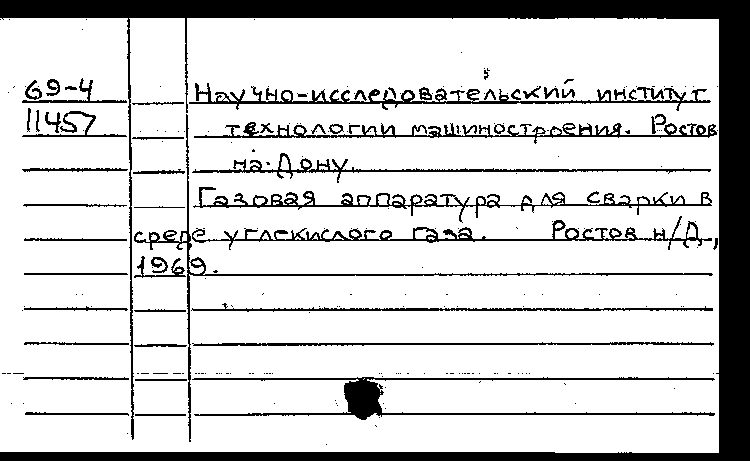 69-4
11457
Научно-исследовательский институт
технологии машиностроения. Ростов
на-Дону.
Газовая аппаратура для сварки в
среде углекислого газа. Ростов н/Д.,
1969.